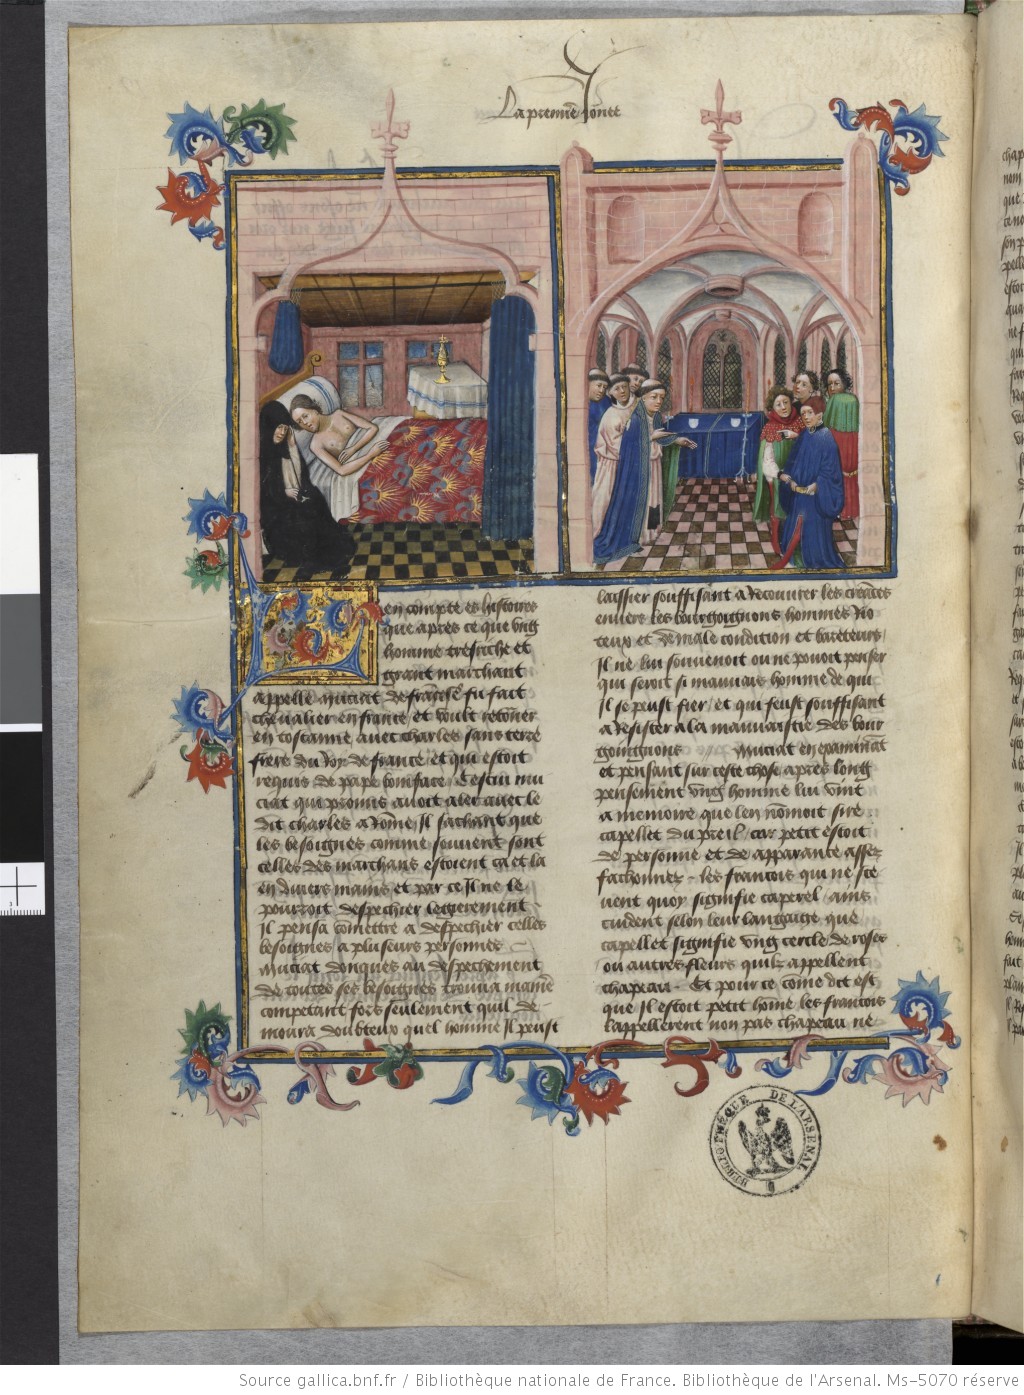 La premiere Jornee
en compte es histoires
que apres ce que ung
homme tresriche et
grant marchant
appelle musciat de franzese fu fait
chevalier en france, et voult retorner
en toscanne avec charles sans terre
frere du Roy de france, et qui estoit
requis de pape boniface, Cestui mu
ciat qui promis avoit aler avec le
dit charles a Rome, Il sachant que
les besoignes comme souvent sont
celles des marchans estoient ca et la
en divers mains et par ce Il ne le
pourroit despechier legierement
Il pensa comettre a despechier celles
besoignes a pluseurs personnes
Musciat donques au despechement
de toutes ses besoignes trouva maniere
competant fors seulement quil de
moura doubteux quel homme Il peust
laissier souffisant a recouvrer les creances
envers les bourgoignons hommes Rio
teux et de male condition et bareteurs
Il ne lui souvenoit ou ne povoit penser
qui seroit si mauvais homme de qui
Il se peust fier, et qui feust souffisant
a resister a la mauvaistie des bour
goignons Musciat en examinant
et pensant sur ceste chose apres long
pensement ung homme lui vint
a memoire que len nommoit sire
capellet du preil, car petit estoit
de personne et de apparance assez
fachonnez. les francois qui ne sce
vent quoy signifie caperel, ains
cuident selon leur langaige que
capellet signifie ung cercle de roses
ou autres fleurs quilz appellent
chapeau. Et pour ce come dit est
que Il estoit petit home les francois
lappellerent non pas chapeau ne
BIBLIOTHÈQUE DE L'ARSENAL
Source gallica.bnf.fr / Bibliothèque nationale de France. Bibliothèque de l'Arsenal. Ms-5070 réserve